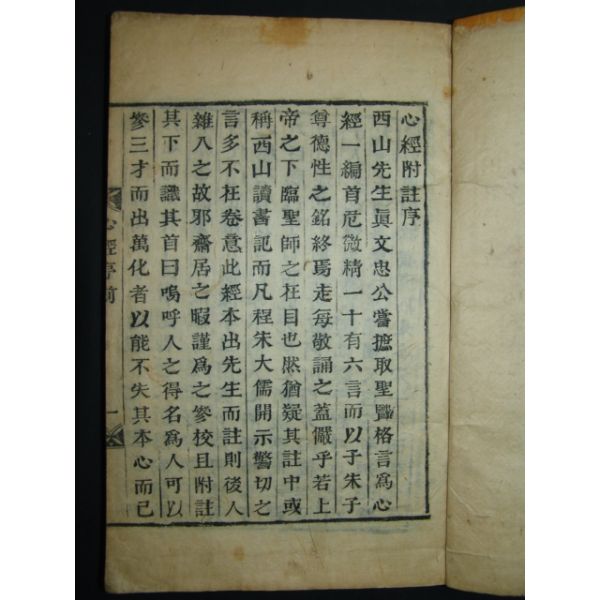 心經附註序
西山先生眞文忠公嘗摭取聖賢格言爲心
經一編首危微精一十有六言而以子朱子
尊德性之銘終焉走每敬誦之蓋儼乎若上
帝之下臨聖師之在目也然猶疑其註中或
稱西山讀書記而凡程朱大儒開示警切之
言多不在卷意此經本出先生而註則後人
雜入之故邪齋居之暇謹爲之參校且附註
其下而識其首曰嗚呼人之得名爲人可以
參三才而出萬化者以能不失其本心而已
心經序前
一